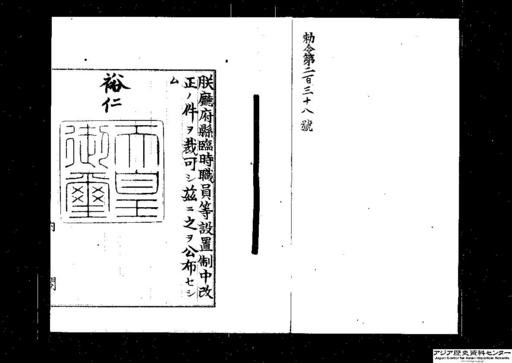 勅令第二百三十八號
朕廳府縣臨時職員等設置制中改
正ノ件ヲ裁可シ玆ニ之ヲ公布セシ
ム
裕仁
天皇
御璽
内
閣
アジア歴史資料センター
Japan Center for Asian Historical Records